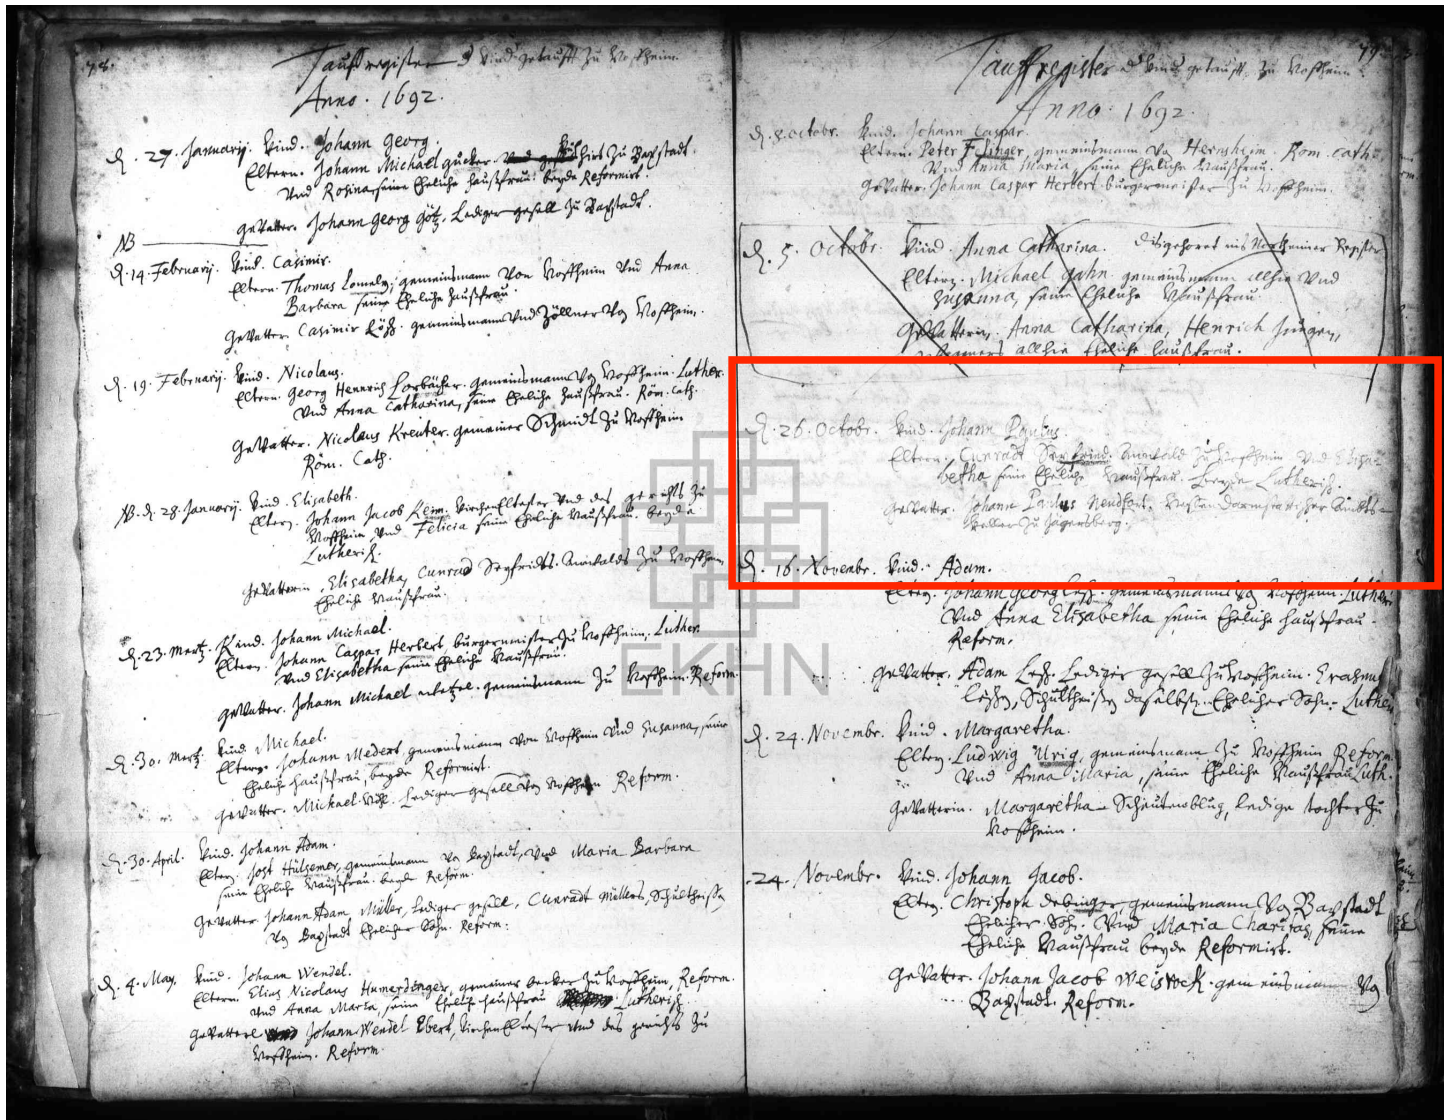 78.
Tauffregister d. Kind. getaufft zu Hoffheim.
Anno. 1692.
d. 27. Januarij. Kind. Johann Georg.
Eltern. Johann Michael Zu Bavstadt.
Und Rosina, seine Eheliche haußfrau. beyde Reformirt.
GeVatter. Johann Georg Götz, Lediger gesell Zu Bavstadt.
NB
d. 14. Februarij. Kind. Casimir.
Eltern. Thomas gemeinsmann Von Hoffheim Und Anna
Barbara seine Eheliche haußfrau.
GeVatter. Casimir gemeinsmann Und Zöllner Von Hoffheim.
d. 19. Februarij. Kind. Nicolaus.
Eltern. Georg Henrich Lorbächer. gemeinsmann Von Hoffheim. Luther.
Und Anna Catharina, seine Eheliche haußfrau. Röm. Cath.
GeVatter. Nicolaus Kreuter. gemeiner Schmidt Zu Hoffheim
Röm. Cath.
NB. d. 28. Januarij. Kind. Elisabeth.
Eltern. Johann Jacob Keim. KirchenEltester Und des gerichts Zu
Hoffheim, Und Felicia seine Eheliche Haußfrau. beyde
Lutherisch.
GeVatterin. Elisabetha, Cunrad Seyfridts. Anwalds Zu Hoffheim
Eheliche Haußfrau.
d. 23. Mertz. Kind. Johann Michael.
Eltern. Johann Caspar Herbert, burgermeister Zu Hoffheim, Luther.
Und Elisabetha seine Eheliche Haußfrau.
GeVatter. Johann Michael gemeinsmann Zu Hoffheim. Reform.
d. 30. Mertz. Kind. Michael.
Eltern. Johann Medert, gemeinsmann Von Hoffheim Und Susanna, seine
Eheliche haußfrau beyde Reformirt.
GeVatter. Michael Lediger gesell Von Hoffheim Reform.
d. 30. April. Kind. Johann Adam.
Eltern. Jost Hülsemer, gemeinsmann Von Bavstadt, Und Maria Barbara
seine Eheliche Haußfrau. beyde Reform.
GeVatter Johann Adam Müller, Lediger gesell, Cunradt Müllers, Schultheißen
Von Bavstadt Ehelicher Sohn. Reform.
d. 4. May. Kind. Johann Wendel.
Eltern. Elias Nicolaus Humerdinger, gemeiner becker Zu Hoffheim, Reform.
Und Anna Maria, seine Eheliche haußfrau Lutherisch.
GeVatter Johann Wendel Ebert, KirchenEltester Und des gerichts Zu
Hoffheim. Reform.
79
Tauffregister d. Kind. getaufft. Zu Hoffheim
Anno. 1692.
d. 8. Octobr. Kind. Johann Caspar.
Eltern. Peter gemeinsmann Von Hernsheim. Rom. Cath.
Und Anna Maria, seine Eheliche Haußfrau.
GeVatter. Johann Caspar Herbert. burgermeister Zu Hoffheim.
d. 5. Octobr. Kind. Anna Catharina. Dis gehoret ins Northeimer Register
Eltern. Michael Hahn gemeinsmann alhie Und
Susanna, seine Eheliche Haußfrau.
GeVatterin. Anna Catharina, Henrich
alhie Eheliche haußfrau.
d. 26. Octobr. Kind. Johann Paulus.
Eltern. Cunradt Seyfried. Anwald Zu Hoffheim Und Elisa-
betha seine Eheliche Haußfrau. beyde Lutherisch.
GeVatter. Johann Paulus Hessen Darmstattischer Ambts-
Keller Zu Jägersberg.
d. 16. Novembr. Kind. Adam.
Eltern. Johann Georg gemeinsmann Von Hoffheim. Luther.
Und Anna Elisabetha seine Eheliche haußfrau.
Reform.
GeVatter. Adam Lediger gesell Zu Hoffheim. Erasmus
Schultheißen daselbst. Ehelicher Sohn. Luther.
d. 24. Novembr. Kind. Margaretha.
Eltern. Ludwig Urig, gemeinsmann Zu Hoffheim Reform.
Und Anna Maria, seine Eheliche Haußfrau Luth.
GeVatterin. Margaretha ledige tochter Zu
Hoffheim.
24. Novembr. Kind. Johann Jacob.
Eltern. Christoph Debinger gemeinsmann Von Bavstadt
Ehelicher Sohn. Und Maria Charitas, seine
Eheliche Haußfrau beyde Reformirt.
GeVatter. Johann Jacob Weistock. gemeinsmann Von
Bavstadt. Reform.
EKHN